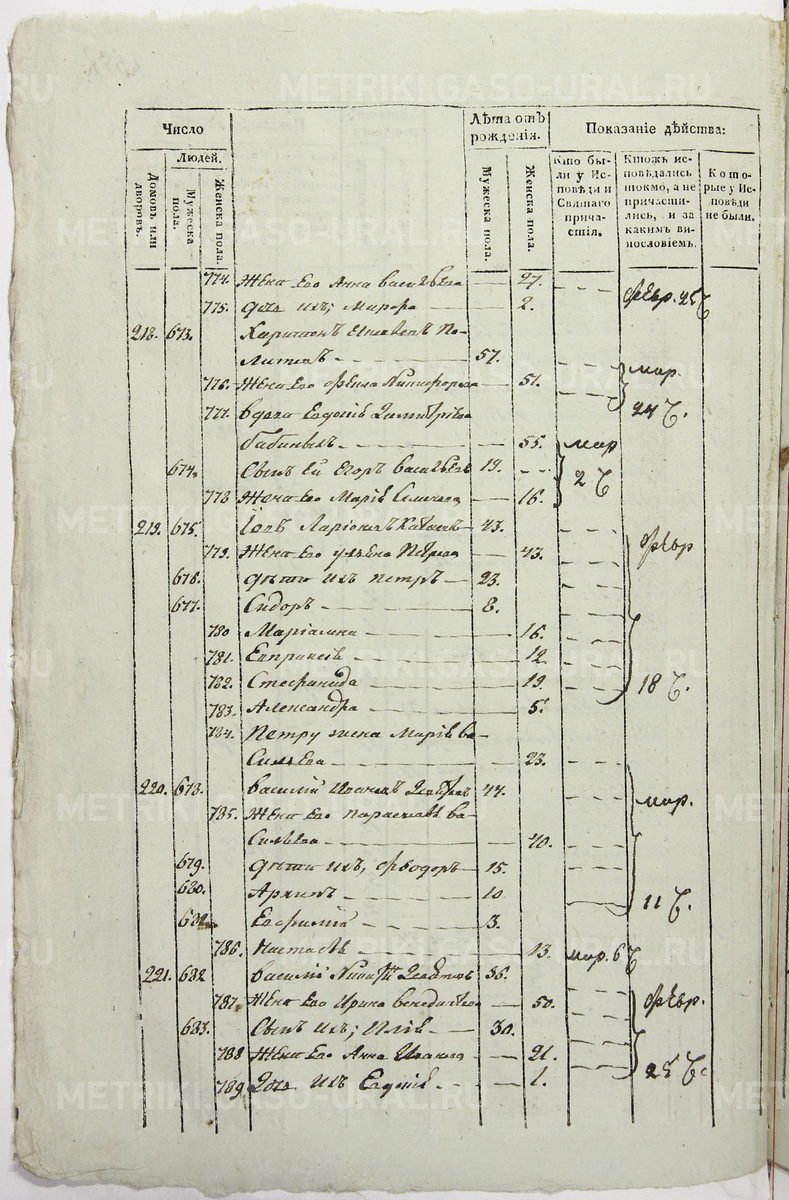 METRIKI.GASO-URAL.RU
Число
Людей.
Домовъ или дворовъ.
Мужеска пола.
Женска пола.
Лѣта отъ рожденія.
Мужеска пола.
Женска пола.
Показаніе дѣйства:
Кто были у Исповѣди и Святаго причастія.
Ктожъ исповѣдались токмо, а не причастились, и за какимъ винословіемъ.
Которые у Исповѣди не были.
774. Жена Его Анна Васильева 27.
775. Дочь ихъ; 2. февр. 25
218. 673. Харитонъ
57.
776. Жена Его Никифорова 51. мар.
777. Вдова Евдокія Димитріева 24
55. мар
674. Сынъ Ей Егоръ Васильевъ 19. 2
778 Жена Его Марія 16.
219. 675. Ларіоновъ 43.
779. Жена Его Ульяна Петрова 43. февр
676. Дѣти ихъ Петръ 23.
677. Сидоръ 8.
780 Маріамна 16.
781. Евпраксія 12.
782. Стефанида 19. 18
783. Александра 5.
784. Петру жена Марія Ва-
сильева 23.
220. 678. Василій Ивановъ 44. мар.
785. Жена Его Параскева Ва-
сильева 40.
679. Дѣти ихъ, Феодоръ 15.
680. Архипъ 10 11
Евфимій 3.
786. Настасья 13. мар. 6
221. 682 Василій 56.
787. Жена Его Ирина 50. февр.
683. Сынъ ихъ; Илія 30.
788 Жена Его Анна Иванова 21.
789. Дочь ихъ Евдокія 1. 25